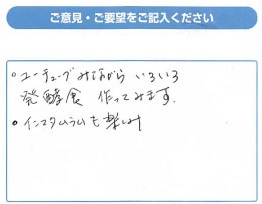 ご意見・ご要望をご記入ください
○ユーチューブみながら いろいろ
発酵食 作ってみます。
●インスタムラムも楽しみ